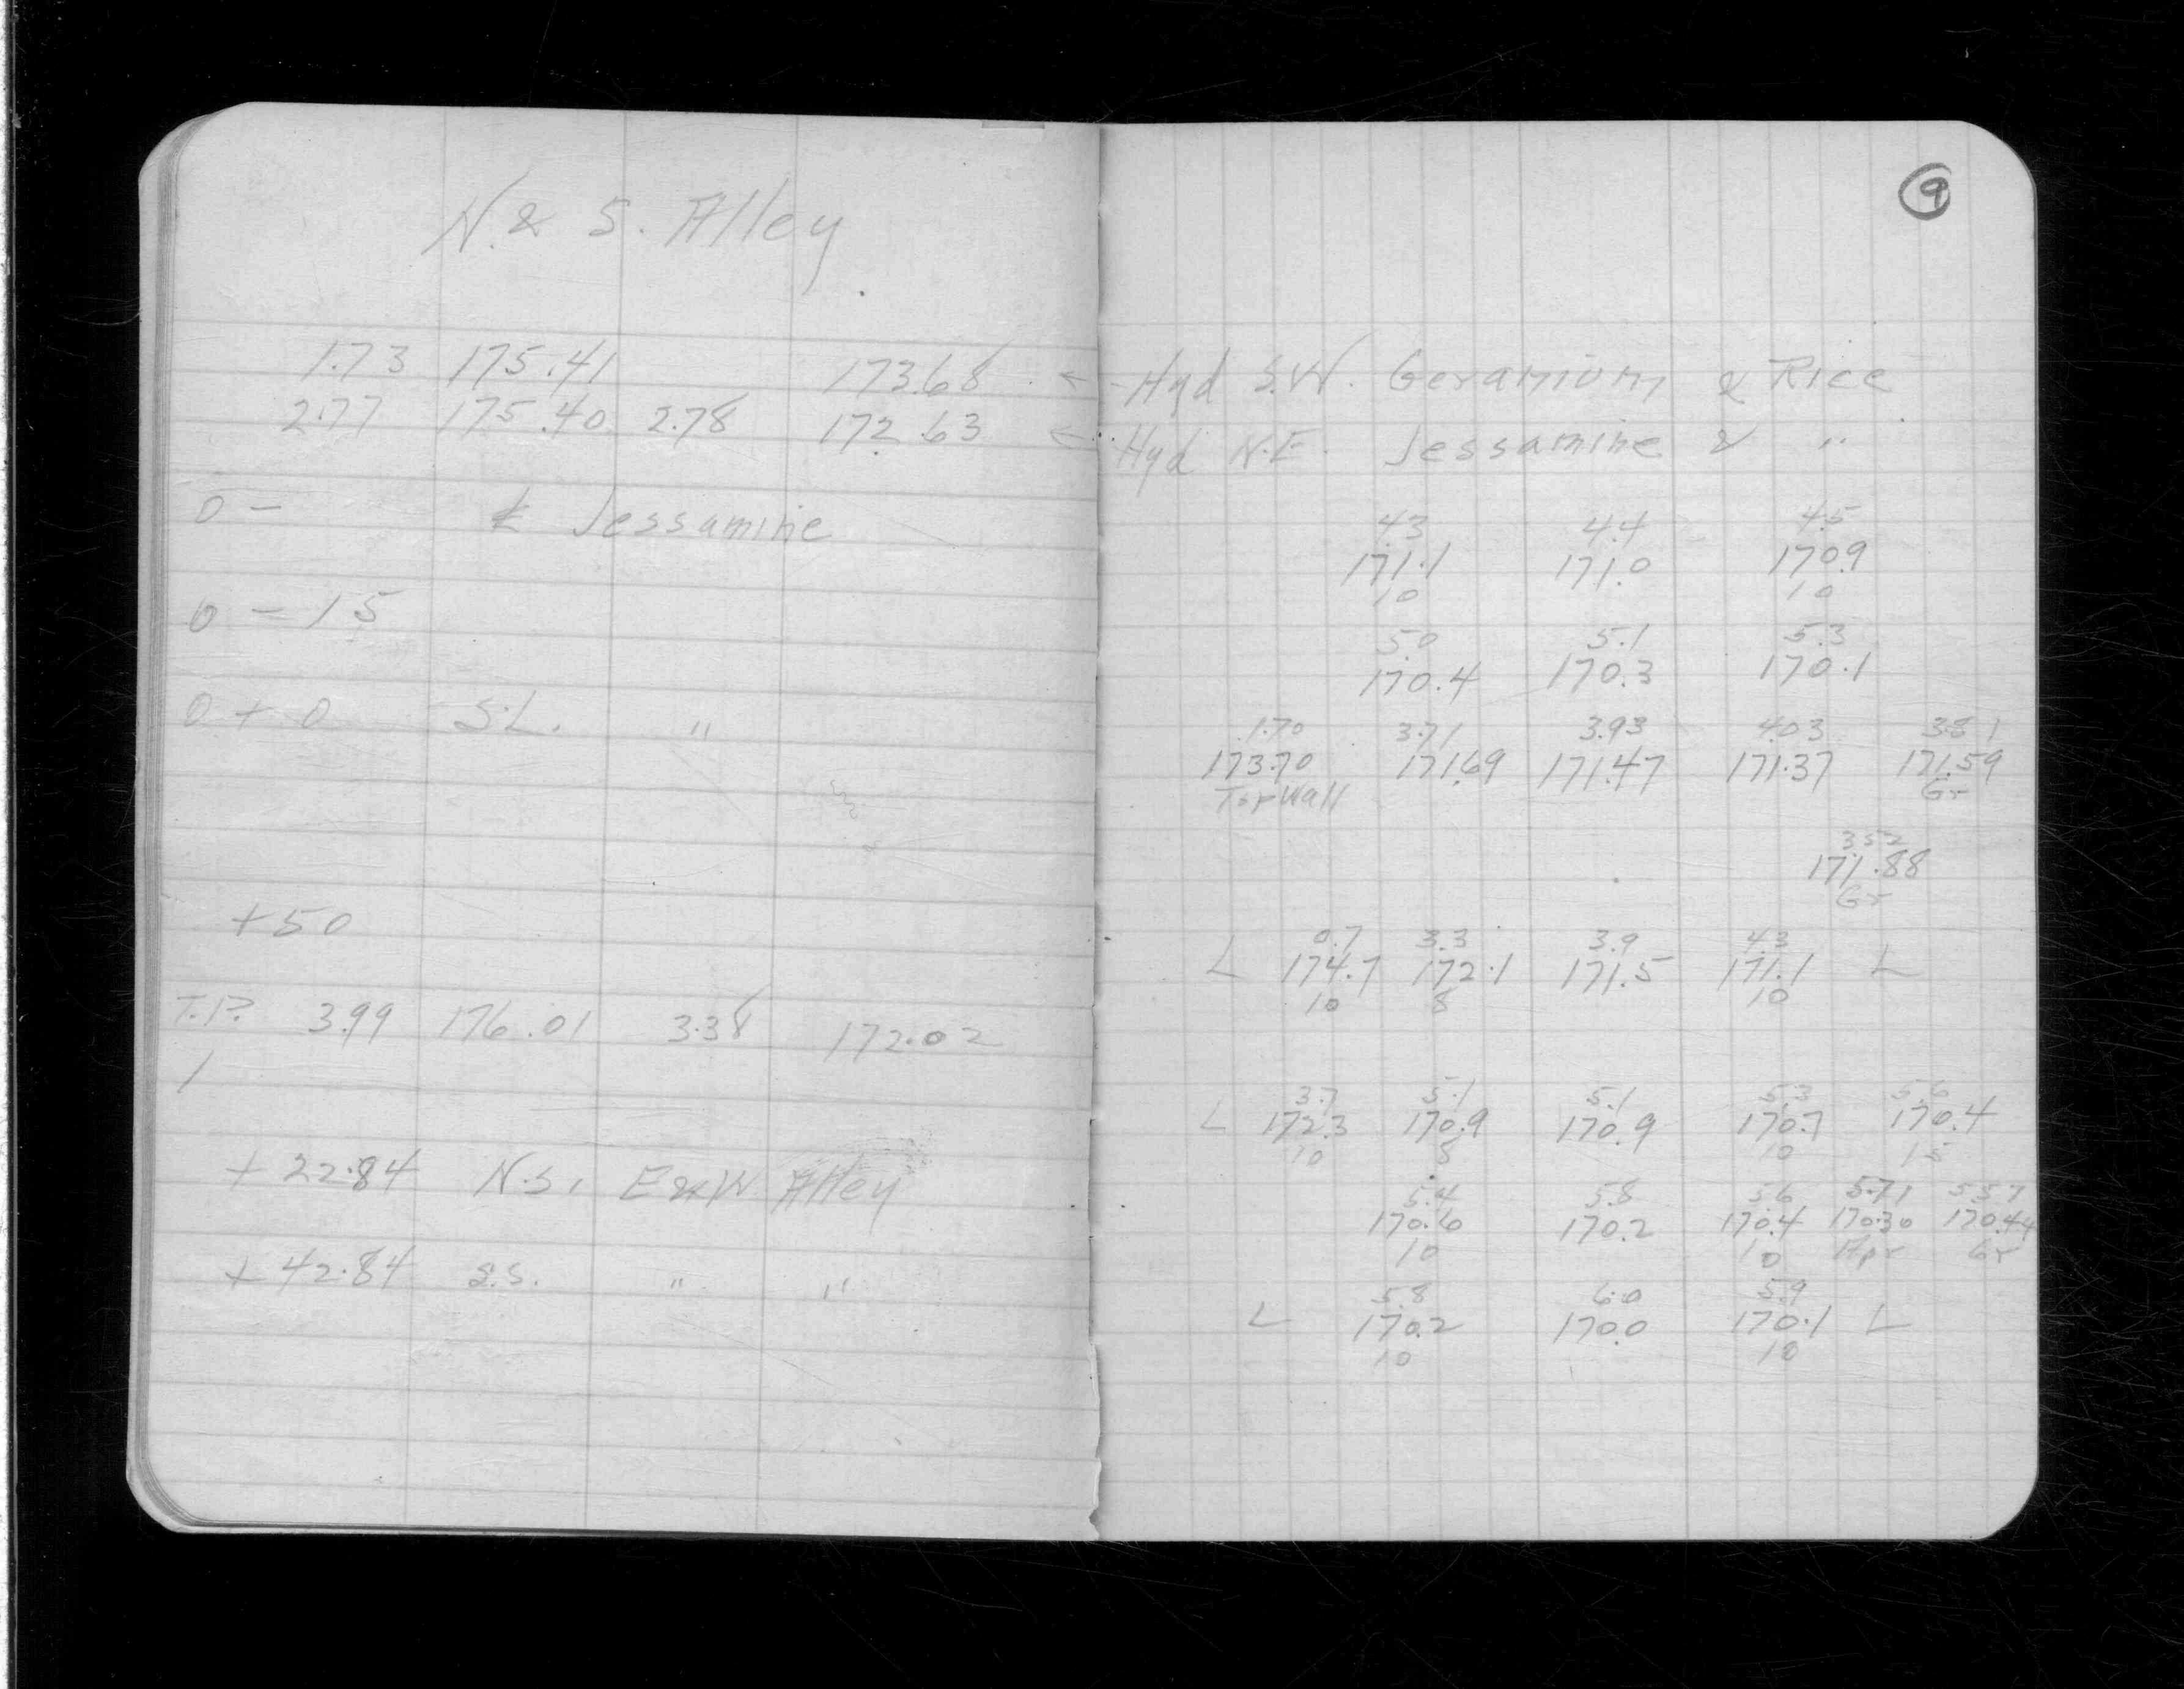 N. & S. Alley
1.73 175.41 173.68 ←
2.77 175.40 2.78 172.63 ←
0 - ℄ Jessamine
0 - 15
0 + 0 S.L. "
+50
T.P. 3.99 176.01 3.38 172.02
1
+ 22.84 N.S. E&W. Alley
+ 42.84 S.S. " "
9
Hyd S.W. Geranium & Rice
Hyd N.E. Jessamine & "
4.3 4.4 4.5
171.1 171.0 170.9
10 10
5.0 5.1 5.3
170.4 170.3 170.1
1.70 3.71 3.93 4.03 3.81
173.70 171.69 171.47 171.37 171.59
Top Wall Gr
3.52
171.88
Gr
0.7 3.3 3.9 4.3
L 174.7 172.1 171.5 171.1 L
10 8 10
3.7 5.1 5.1 5.3 5.6
L 172.3 170.9 170.9 170.7 170.4
10 8 10 15
5.4 5.8 5.6 5.71 5.57
170.6 170.2 170.4 170.30 170.44
10 10 Apr Gr
5.8 6.0 5.9
L 170.2 170.0 170.1 L
10 10